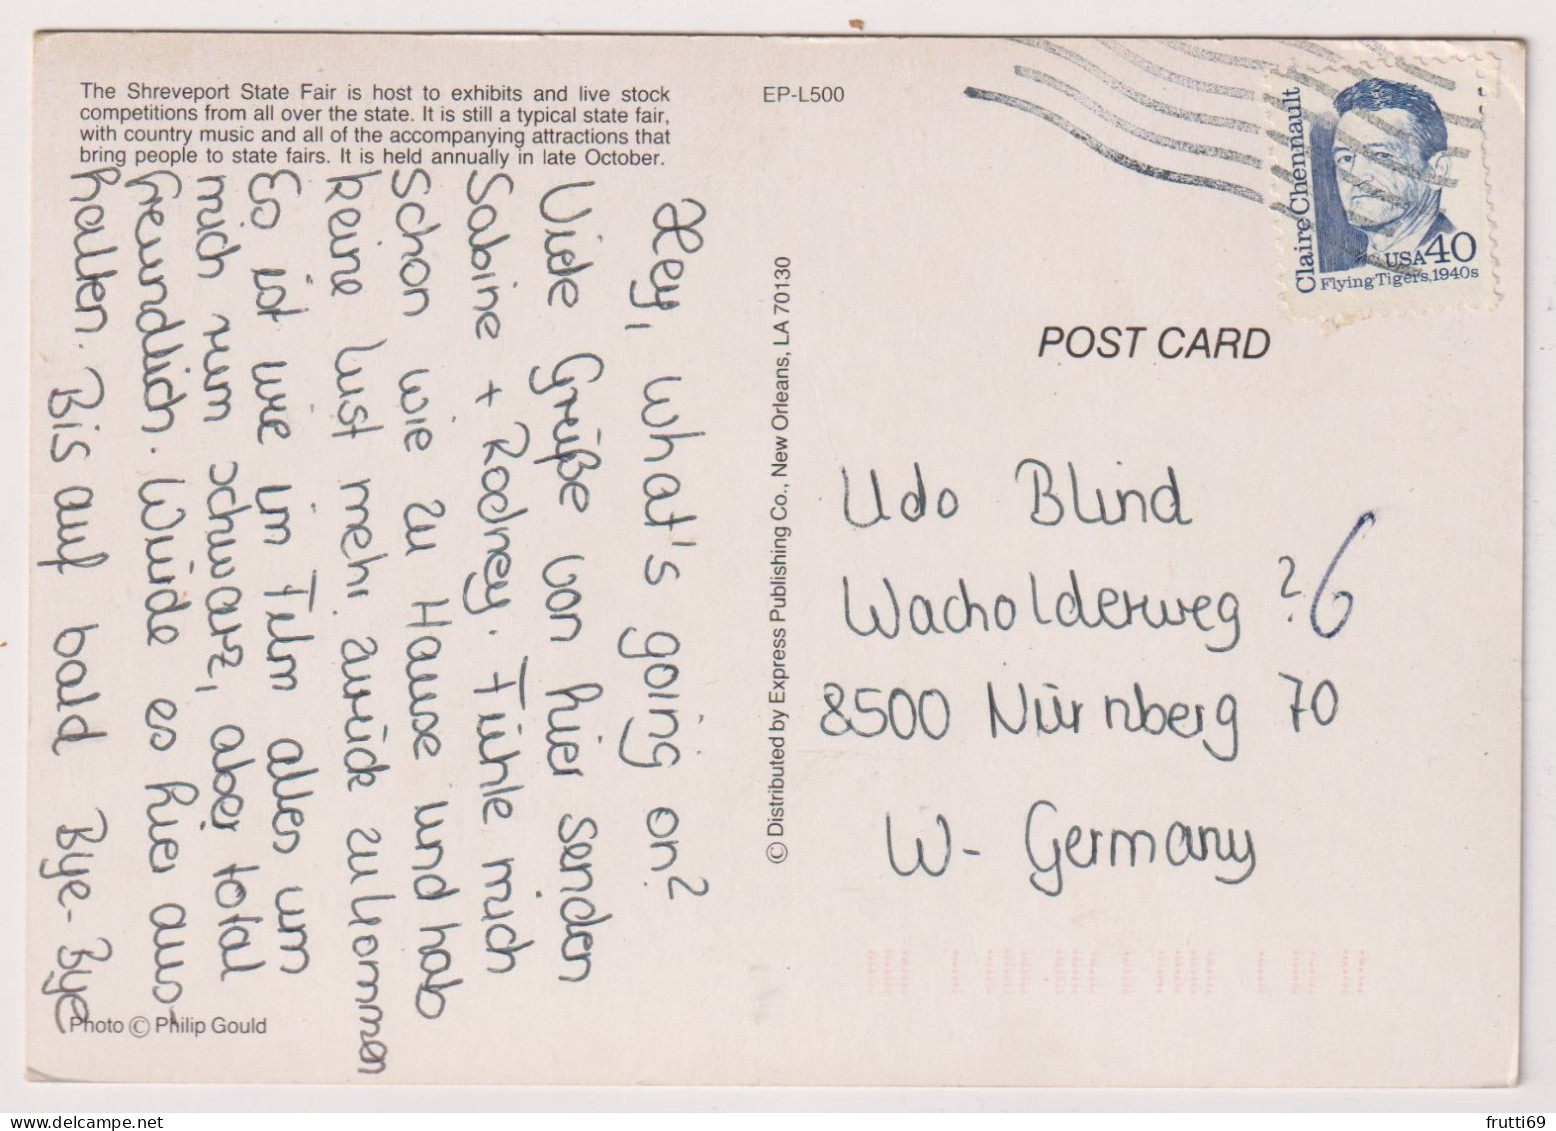 The Shreveport State Fair is host to exhibits and live stock
competitions from all over the state. It is still a typical state fair,
with country music and all of the accompanying attractions that
bring people to state fairs. It is held annually in late October.
EP-L500
Claire Chennault
USA 40
Flying Tigers, 1940s
POST CARD
Hey, what's going on?
Viele Grüße von hier senden
Sabine + Rodney. Fühle mich
schon wie zu Hause und hab
keine Lust mehr zurück zu kommen
Es ist wie im Film alles um
mich rum schwarz, aber total
freundlich. Würde es hier aus-
halten. Bis auf bald Bye-Bye
© Distributed by Express Publishing Co., New Orleans, LA 70130
Udo Blind
Wacholderweg ? 6
8500 Nürnberg 70
W- Germany
Photo © Philip Gould
frutti69